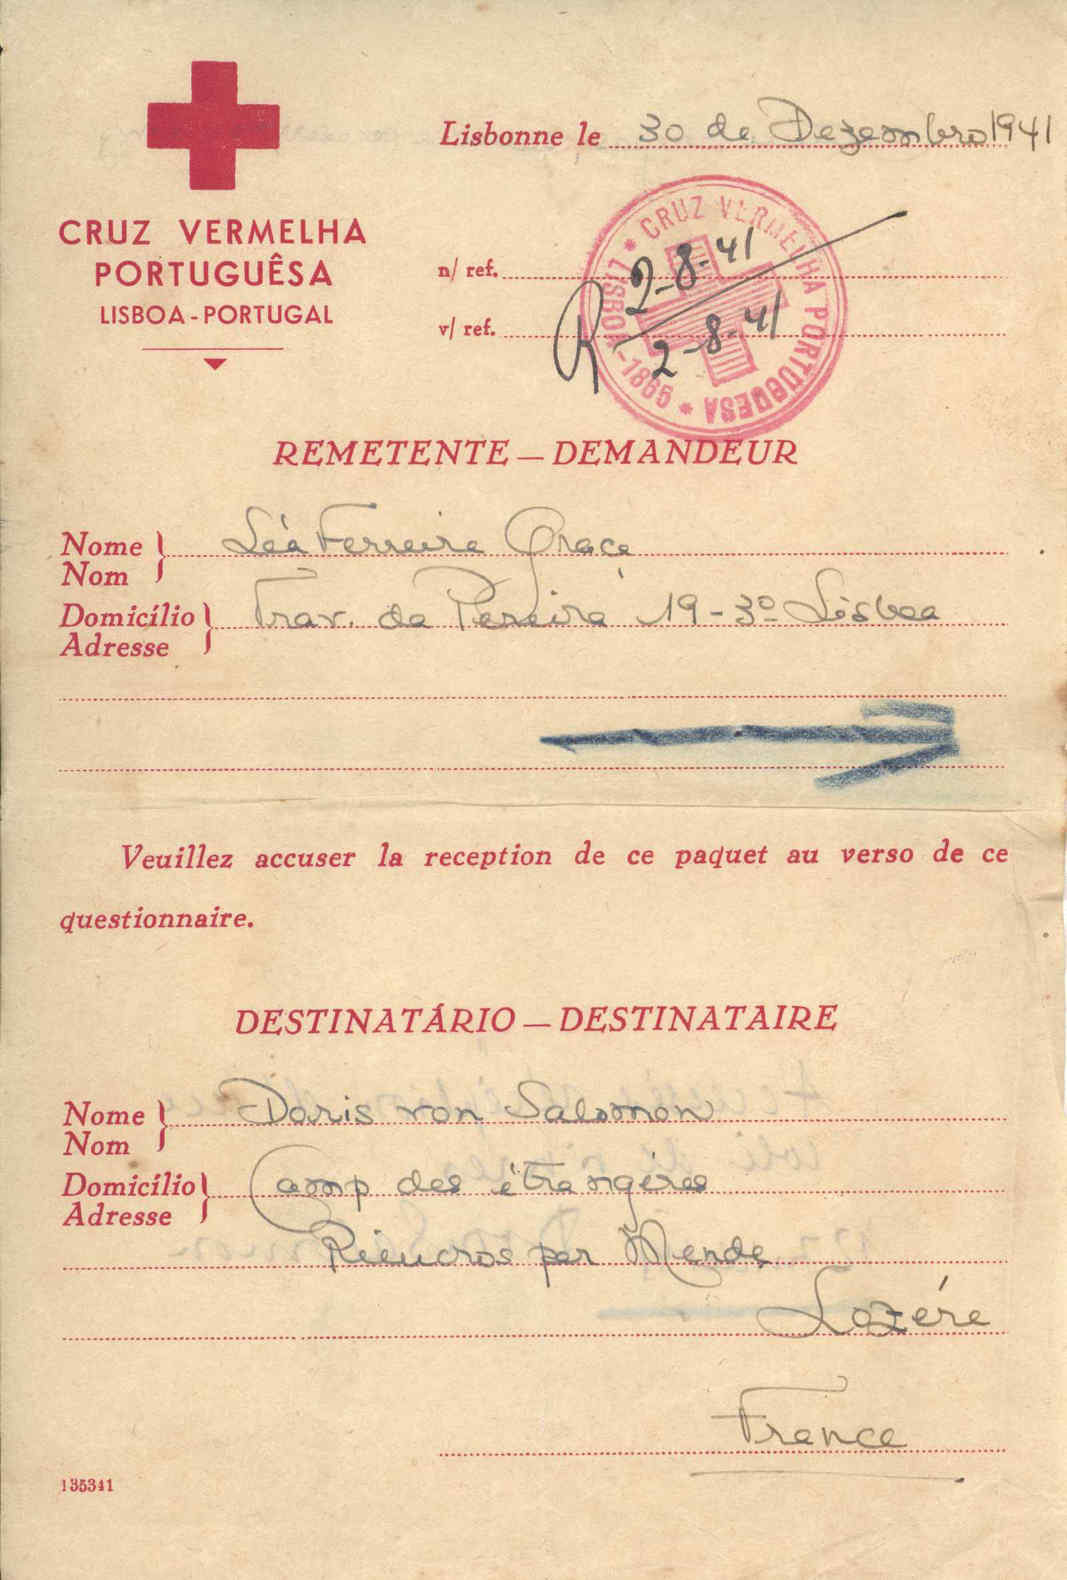 CRUZ VERMELHA
PORTUGUÊSA
LISBOA - PORTUGAL
Lisbonne le 30 de Dezembro 1941
n/ ref.
v/ ref.
R 2-8-41
2-8-41
* CRUZ VERMELHA PORTUGUESA * LISBOA-1865
REMETENTE — DEMANDEUR
Nome
Nom
Léa Ferreira Graça
Domicílio
Adresse
Trav. da Pereira 19-3º Lisboa
Veuillez accuser la reception de ce paquet au verso de ce
questionnaire.
DESTINATÁRIO — DESTINATAIRE
Nome
Nom
Doris von Salomon
Domicílio
Adresse
Camp des étrangéres
Rieucros par Mende
Lozére
France
135341